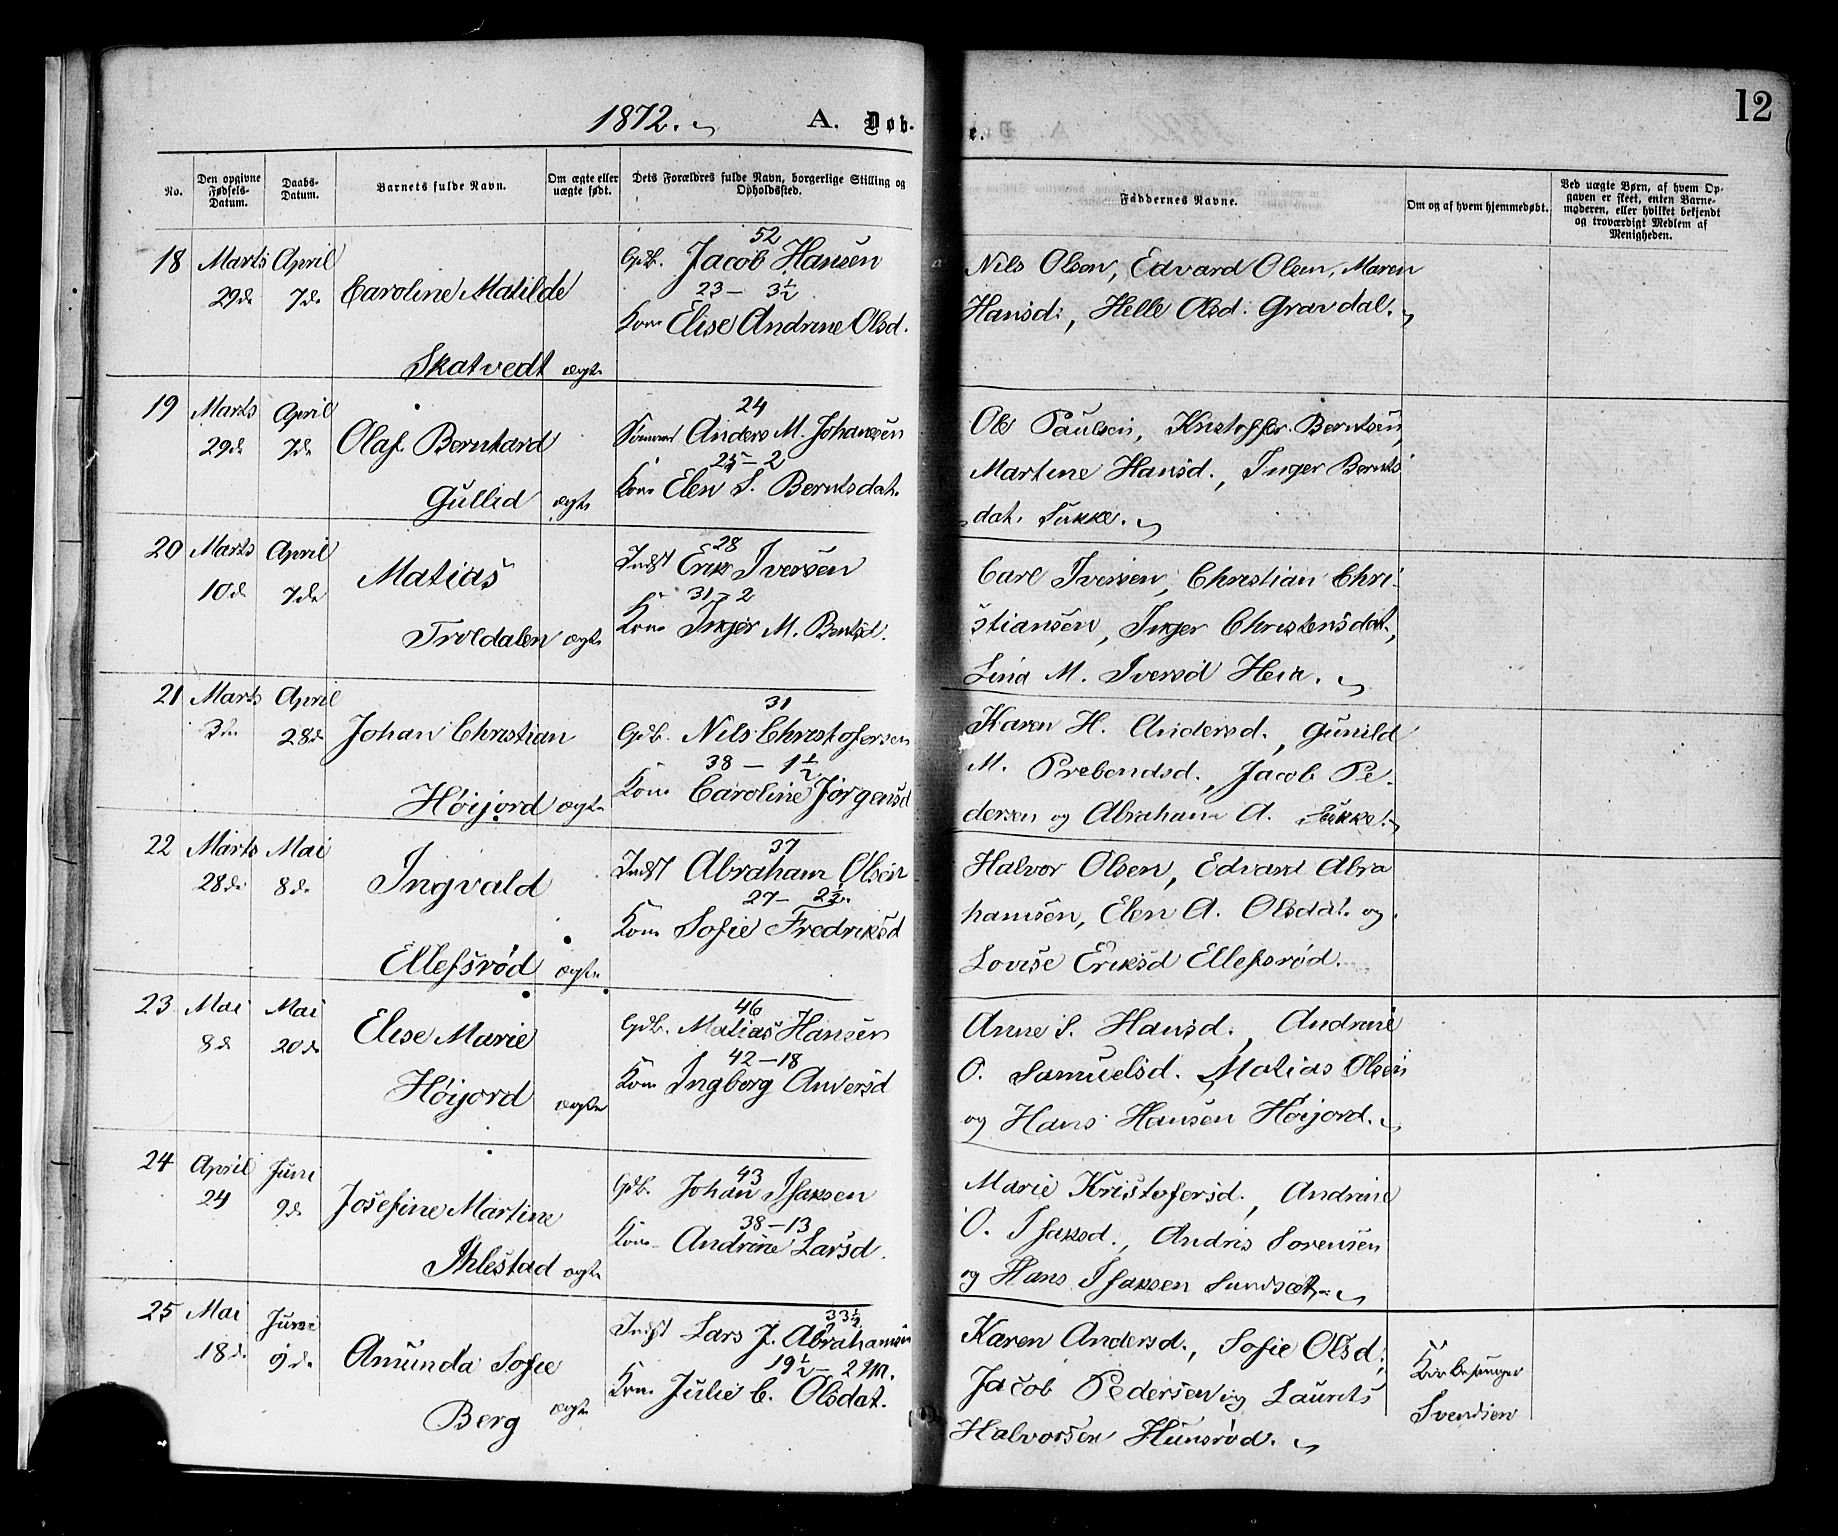 1872.
A. Døb-
e.
12
No.
Den opgivne Fødsels-Datum.
Daabs-Datum.
Barnets fulde Navn.
Om ægte eller uægte født.
Dets Forældres fulde Navn, borgerlige Stilling og Opholdssted.
Faddernes Navne.
Om og af hvem hjemmedøbt.
Ved uægte Børn, af hvem Opgaven er skeet, enten Barnemoderen, eller hvilket bekjendt og troværdigt Medlem af Menigheden.
18 Marts 29de April 7de
Caroline Matilde
Skatvedt ægte
52
Gdb. Jacob Hansen
23 – 3½
Kone Elise Andrine Olsd.
Nils Olsen, Edvard Olsen, Maren
Hansd:, Helle Olsd. Gravdal.
19 Marts 29de April 7de
Olaf Bernhard
Gullid ægte
24
Anders M. Johansen
25 – 2
Kone Elen S. Berntsdat.
Ole Paulsen, Kristoffer Berntsen,
Martine Hansd., Inger Bernts
dat. Sukke.
20 Marts 10de April 7de
Matias
Troldalen ægte
28
Indst Erik Iversen
31 – 2
Kone Inger M. Bentsd.
Carl Iversen, Christian Chri-
stiansen, Inger Christensdat.,
Lina M. Iversd
21 Marts 3de April 28de
Johan Christian
Høijord ægte
31
Gdb. Nils Christofersen
38 – 1½
Kone Caroline Jørgensd
Karen H. Andersd., Gunild
M. Prebensd., Jacob Pe-
dersen og Abraham A. Sukke.
22 Marts 28de Mai 8de
Ingvald
Ellefsrød ægte
37
Indst Abraham Olsen
27 – 2½.
Kone Sofie Fredriksd
Halvor Olsen, Edvard Abra
hamsen, Elen A. Olsdat. og
Lovise Eriksd Ellefsrød.
23 Mai 8de Mai 20de
Elise Marie
Høijord ægte
46
Gdb. Matias Hansen
42 – 18
Kone Ingborg Andersd
Anne S. Hansd., Andrine
O. Samuelsd. Matias Olsen
og Hans Hansen Høijord.
24 April 24 Juni 9de
Josefine Martine
Ihlestad ægte
43
Gdb. Johan Isaksen
38 – 13
Kone Andrine Larsd.
Marie Kristofersd., Andrine
O. Isaksd., Andris Sorensen
og Hans Isaksen Sundset.
25 Mai 18de Juni 9de
Amunda Sofie
Berg ægte
33½
Indst Lars J. Abrahamsen
19½ – 2 M.
Kone Julie C. Olsdat.
Karen Andersd., Sofie Olsd.,
Jacob Pedersen og Laurits
Halvorsen Hunsrød.
Kirkesanger
Svendsen